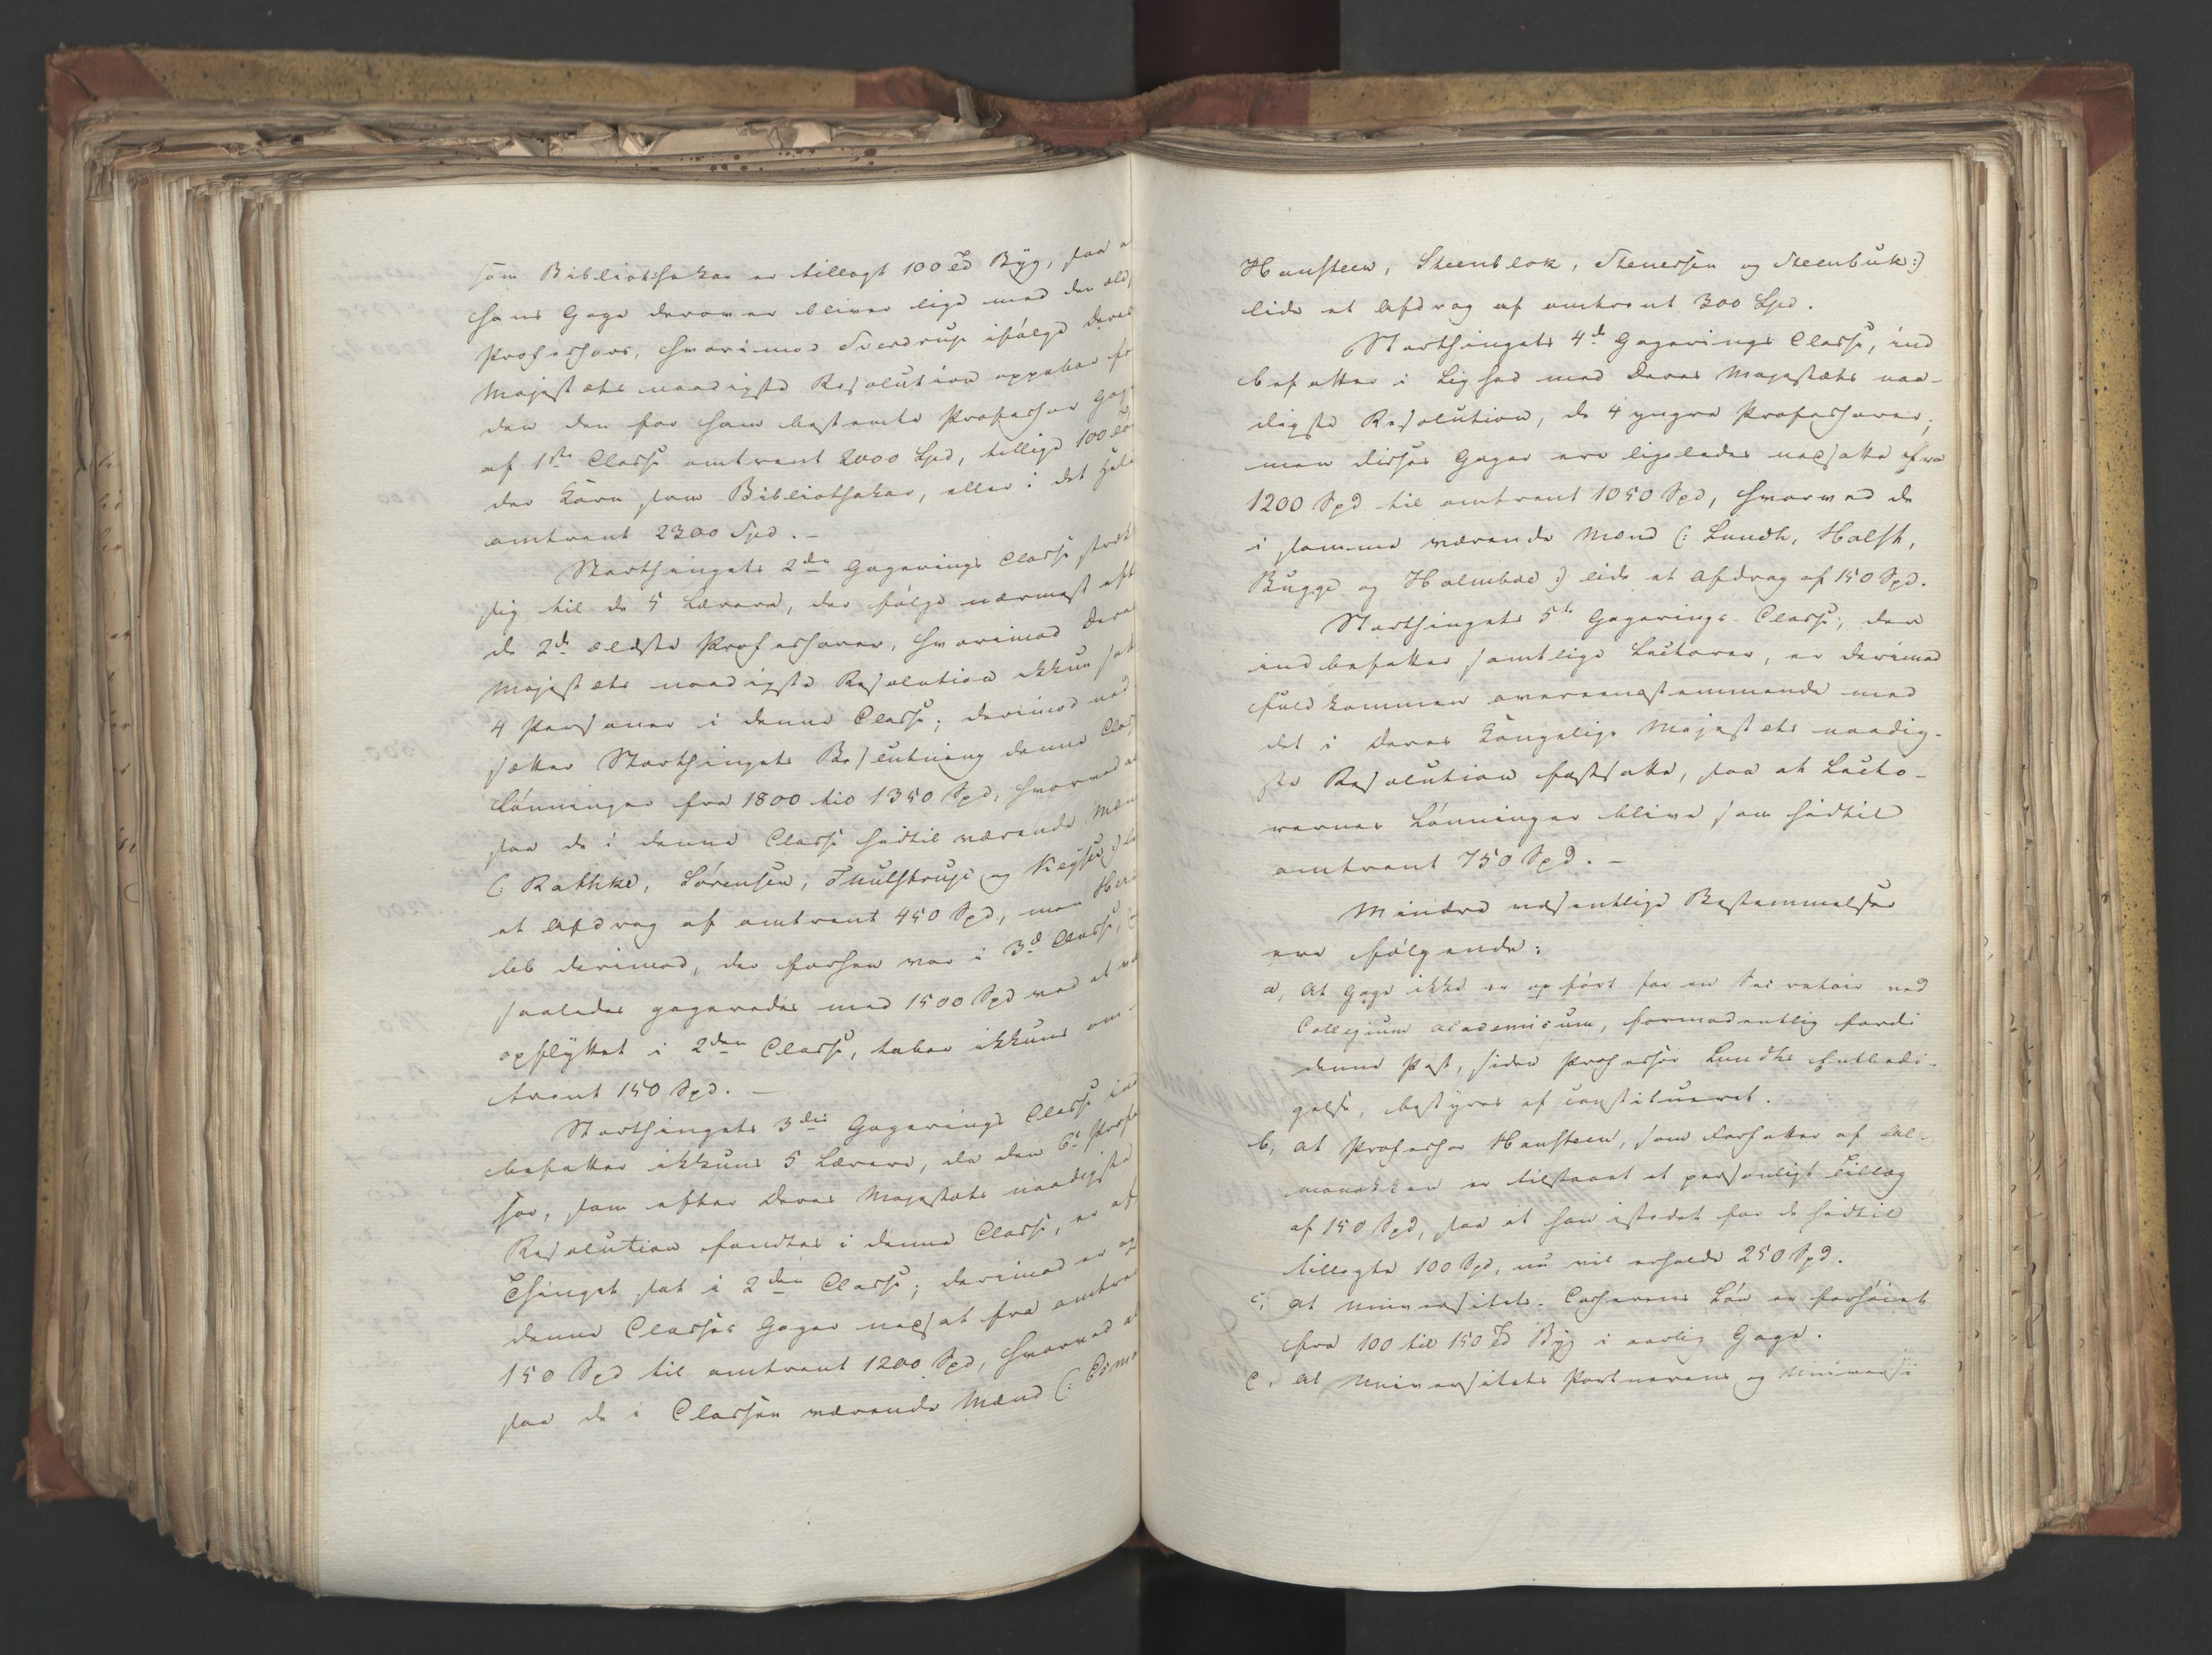 som Bibliothekar er tillagt 100 Td Byg, saa a
hans Gage derover bliver lige med den æld
Professors, hvorimod Sverdrup ifølge Deres
Majestæts naadigste Resolution oppebar fo
den den for ham bestemte Professor Gag
af 1ste Classe omtrent 2000 Spd, tillige 100 Tdr
der Korn som Bibliothekar, eller i det Hele
omtrent 2300 Spd. –
Storthingets 2den Gagerings Classe stræk
sig til de 5 Lærere, der følge nærmest eft
de 2de ældste Professorer, hvorimod Deres
Majestæts naadigste Resolution ikkun sat
4 Personer i denne Classe; derimod ned
sætter Storthingets Beslutning denne Clas
Lønninger fra 1800 til 1350 Spd, hvorved a
saa de i denne Classe hidtil værende Mæn
(: Rathke, Sørensen, Thulstrup og Keyser :) li
et Afdrag af omtrent 450 Spd, men Her
leb derimod, der forhen var i 3de Classe,
saaledes gageredes med 1500 Spd ved at væ
opflyttet i 2den Classe, taber ikkuns om-
trent 150 Spd. –
Storthingets 3die Gagerings Classe ind
befatter ikkuns 5 Lærere, da den 6te Profes
sor, som efter Deres Majestæts naadigste
Resolution fandtes i denne Classe, er af
Thinget sat i 2den Classe; derimod er og
denne Classes Gager nedsat fra omtre
150 Spd til omtrent 1200 Spd, hvorved a
saa de i Classen værende Mænd (: Esma
Hansteen, Steenblok, Stenersen og Steenbuk :)
lide et Afdrag af omtrent 300 Spd.
Storthingets 4de Gagerings Classe, ind
befatter i Lighed med Deres Majestæts naa-
digste Resolution, de 4 yngre Professorer;
men disses Gager ere ligeledes nedsatte fra
1200 Spd til omtrent 1050 Spd, hvorved de
i samme værende Mænd (: Lundh, Holst,
Bugge og Holmboe :) lide et Afdrag af 150 Spd.
Storthingets 5te Gagerings-Classe, der
indbefatter samtlige Lectorer, er derimod
fuldkommen overeensstemmende med
det i Deres Kongelige Majestæts naadig-
ste Resolution fastsatte, saa at Lecto-
rernes Lønninger blive som hidtil
omtrent 750 Spd. –
Mindre væsentlige Bestemmelser
ere følgende:
a, At Gage ikke er opført for en Secretair ved
Collegium academicum, formodentlig fordi
denne Post, siden Professor Lundhs Entledi-
gelse, bestyres af constitueret.
b, at Professor Hansteen, som Forfatter af Al-
manakken er tilstaaet et personligt Tillæg
af 150 Spd, saa at han istedet for de hidtil
tillagte 100 Spd, nu vil erholde 250 Spd.
c, at Universitets-Casserens Løn er forhøiet
fra 100 til 150 Td Byg i aarlig Gage.
d. at Universitets Portnerens og Universi